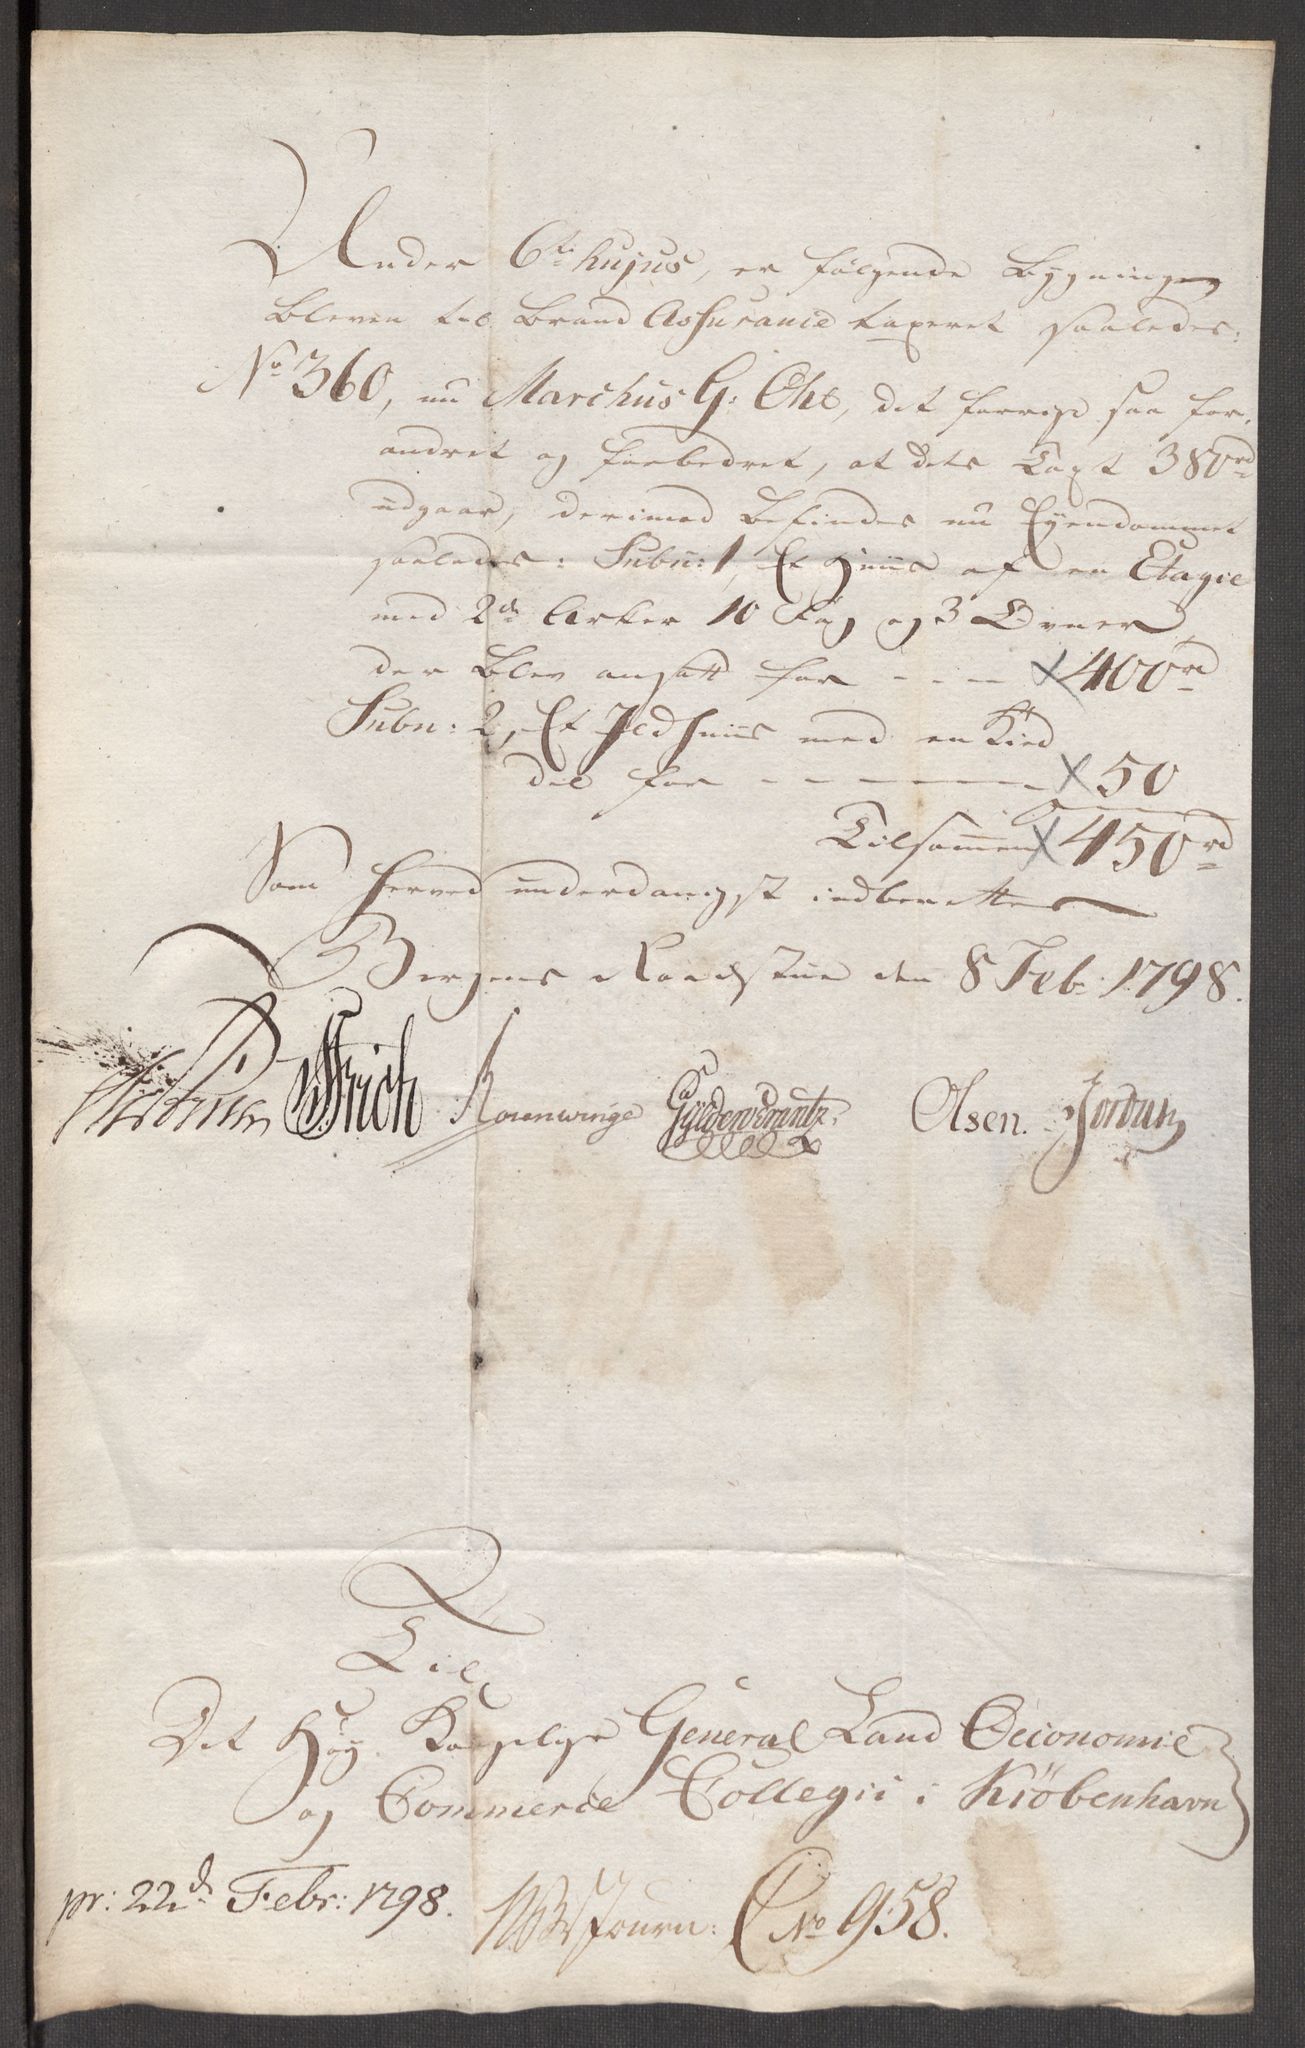 Under 6te hujus, er følgende Bygninger
bleven til Brand Assurance taxeret saaledes:
No 360, nu Marchus G: Ohs, det forrige saa for-
andret og forbedret, at dets Taxt 380rd
udgaar, derimod befindes nu Eyendommet
saaledes: Subn: 1, Et Huus af en Etagie
med 2de Arker 10 Fag og 3 Ovner
der blev ansatt for - - - 400rd
Subn: 2, Et Ildhuus med en Kied
del for - - - - - - 50
Tilsammen 450rd
Som herved underdanigst indberettes
Bergens Raadstue den 8 Feb: 1798.
Rosenwinge Gyldenkrantz. Olsen. Jordan
Til
Det Høy Kongelige General Land Oeconomie
og Commerce Collegii i Kiöbenhavn
pr: 22de Febr: 1798. Journ: C No 958.